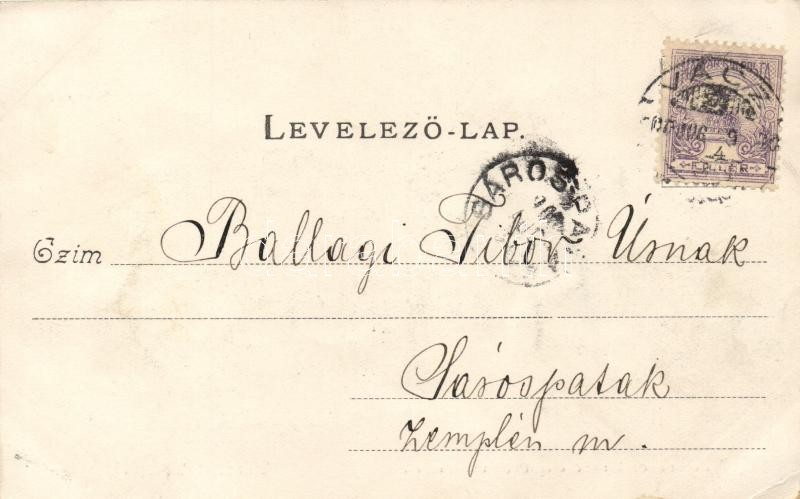 LEVELEZŐ-LAP.
Czim Ballagi Tibor Úrnak
Sárospatak
Zemplén m.
4
FILLÉR
SÁROSPATAK